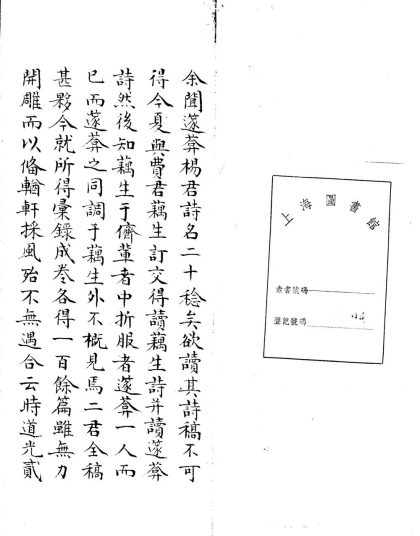 余聞蘧葊楊君詩名二十稔矣欲讀其詩稿不可
得今夏與費君藕生訂交得讀藕生詩并讀蘧葊
詩然後知藕生于儕輩者中折服者蘧葊一人而
已而蘧葊之同調于藕生外不概見焉二君全稿
甚夥今就所得彙錄成卷各得一百餘篇雖無力
開雕而以俻輶軒採風殆不無遇合云時道光貳
上海圖書館
索書號碼
登記號碼